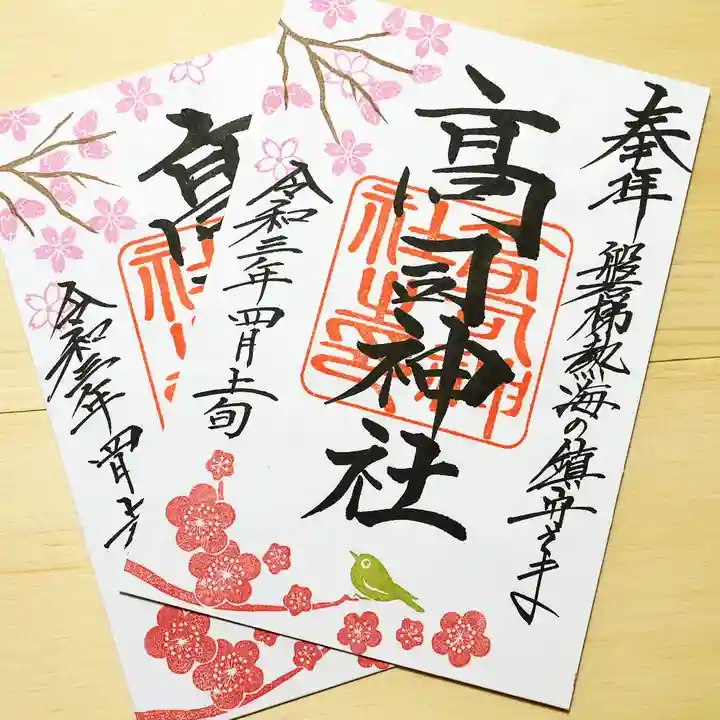 奉拝
磐梯熱海の鎮守さま
高司神社
令和三年 四月上旬
高
令和三年 四月上